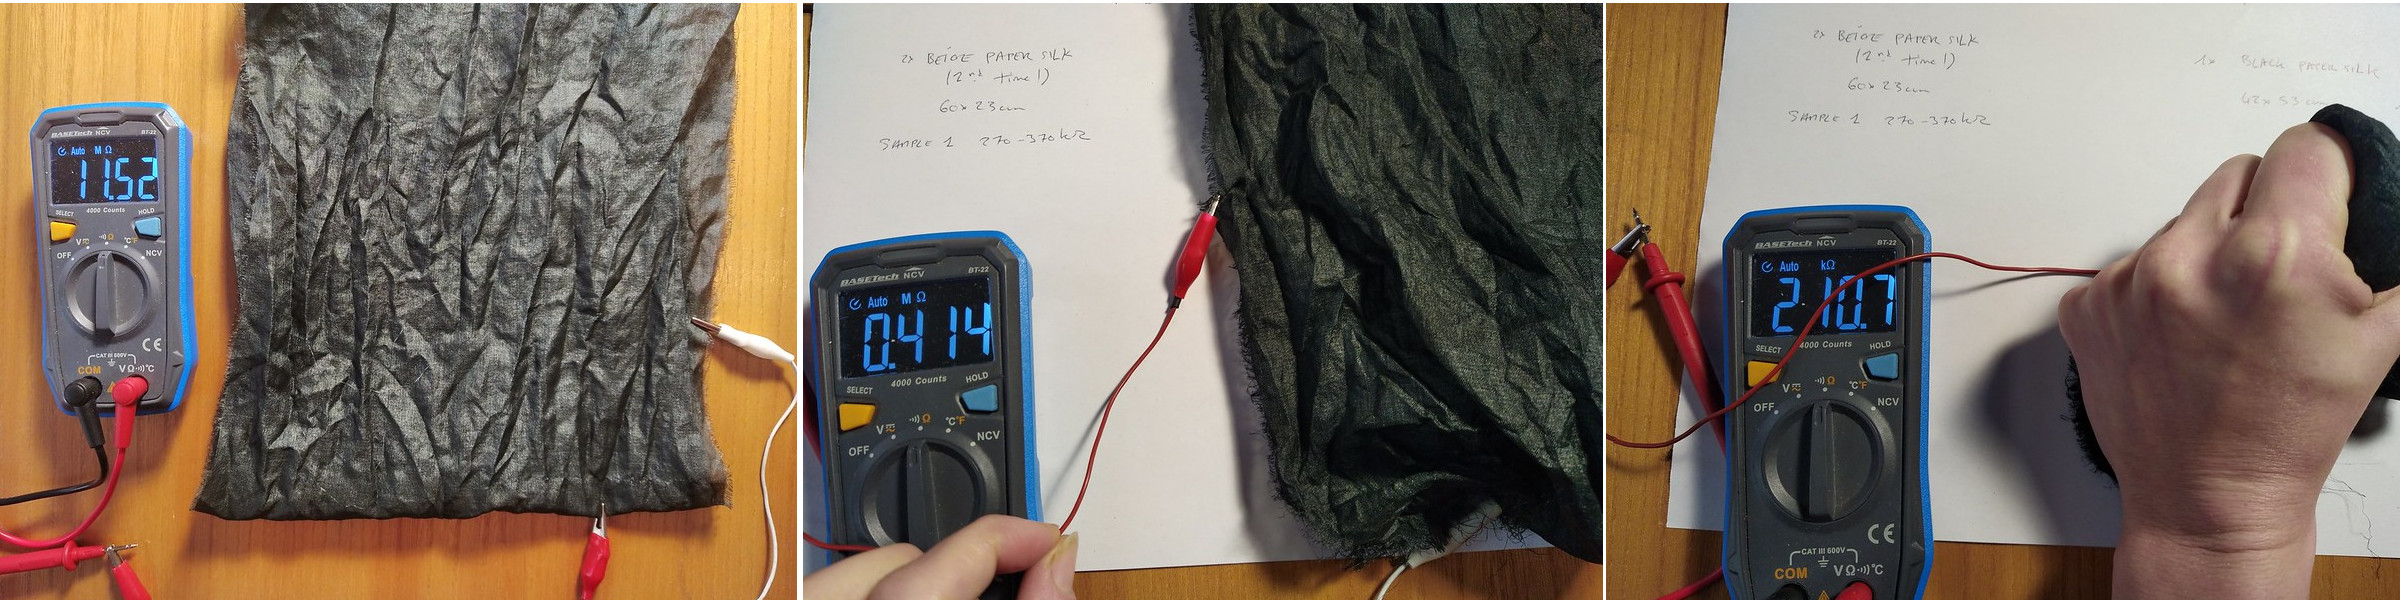 BASETech NCV BT-22
Auto M Ω
11.52
4000 Counts
SELECT HOLD
V Ω °C°F
OFF NCV
CAT III 600V
CE
COM VΩ °C
2x BEIGE PAPER SILK
(2nd time!)
60x23cm
SAMPLE 1 270-370kΩ
BASETech NCV BT-22
Auto M Ω
0.414
4000 Counts
SELECT HOLD
V Ω °C°F
OFF NCV
2x BEIGE PAPER SILK
(2nd time!)
60x23cm
SAMPLE 1 270-370kΩ
1x BLACK PAPER SILK
42x53cm
BASETech NCV BT-22
Auto kΩ
210.7
4000 Counts
SELECT HOLD
V Ω °C°F
OFF NCV
CE
CAT III 600V
COM VΩ °C